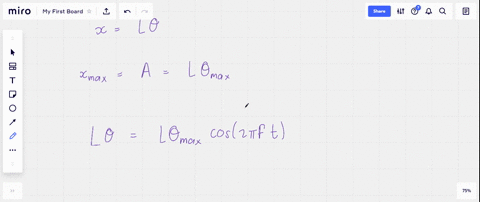 miro My First Board Share
x = Lθ
x_max = A = Lθ_max
Lθ = Lθ_max cos(2πf t)
75%